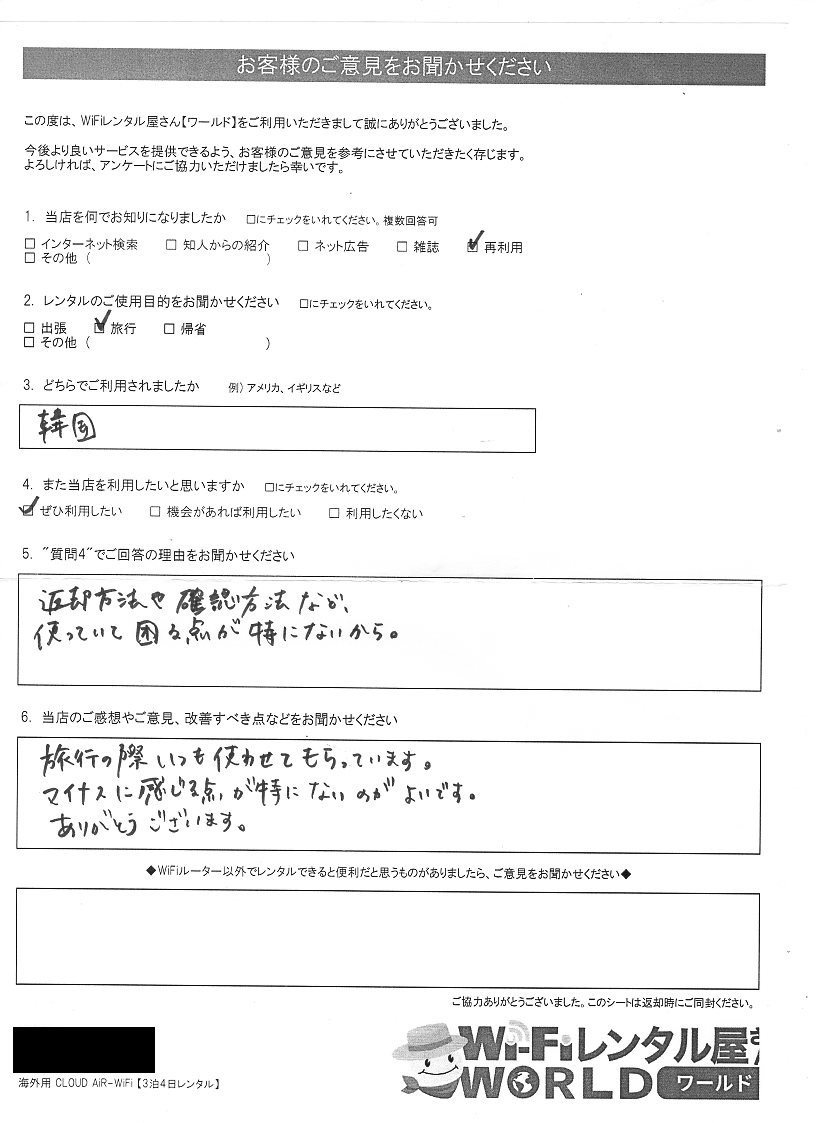 お客様のご意見をお聞かせください
この度は、WiFiレンタル屋さん【ワールド】をご利用いただきまして誠にありがとうございました。
今後より良いサービスを提供できるよう、お客様のご意見を参考にさせていただきたく存じます。
よろしければ、アンケートにご協力いただけましたら幸いです。
1. 当店を何でお知りになりましたか □にチェックをいれてください。複数回答可
□ インターネット検索 □ 知人からの紹介 □ ネット広告 □ 雑誌 ☑ 再利用
□ その他 ( )
2. レンタルのご使用目的をお聞かせください □にチェックをいれてください。
□ 出張 ☑ 旅行 □ 帰省
□ その他 ( )
3. どちらでご利用されましたか 例) アメリカ、イギリスなど
韓国
4. また当店を利用したいと思いますか □にチェックをいれてください。
☑ ぜひ利用したい □ 機会があれば利用したい □ 利用したくない
5. "質問4"でご回答の理由をお聞かせください
返却方法や確認方法など、
使っていて困る点が特にないから。
6. 当店のご感想やご意見、改善すべき点などをお聞かせください
旅行の際いつも使わせてもらっています。
マイナスに感じる点が特にないのがよいです。
ありがとうございます。
◆WiFiルーター以外でレンタルできると便利だと思うものがありましたら、ご意見をお聞かせください◆
ご協力ありがとうございました。このシートは返却時にご同封ください。
Wi-Fiレンタル屋さん
WORLD ワールド
海外用 CLOUD AiR-WiFi 【3泊4日レンタル】